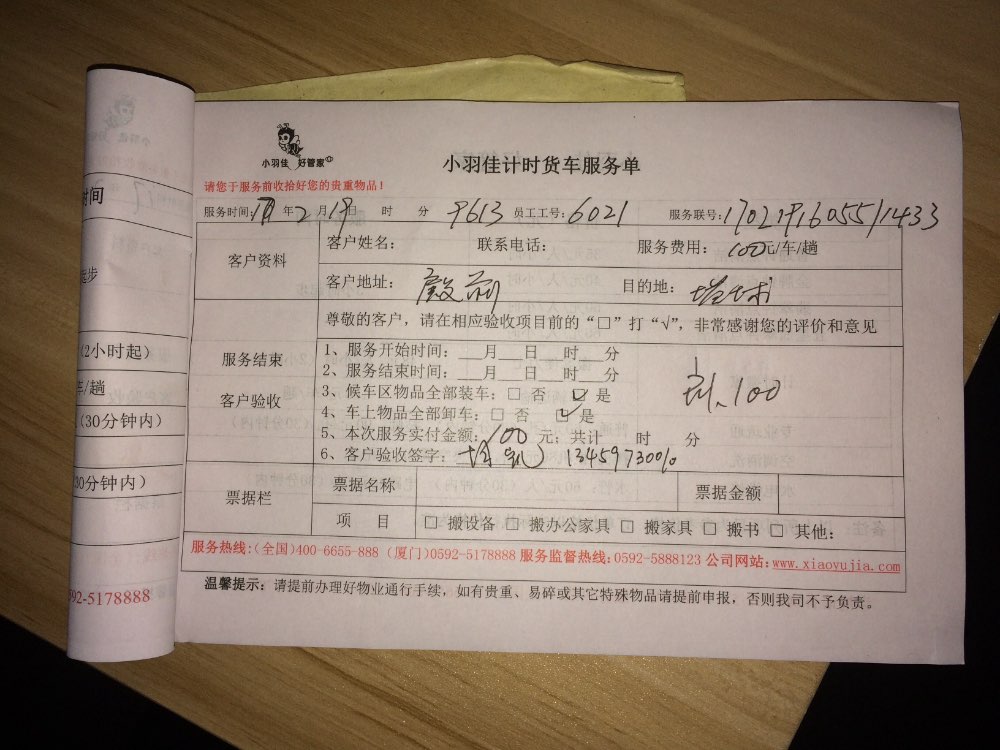 小羽佳 好管家
小羽佳计时货车服务单
请您于服务前收拾好您的贵重物品！
服务时间: 17年2月19日 时 分 9613 员工工号: 6021 服务联号:
客户资料
客户姓名: 联系电话: 服务费用: 100元/车/趟
客户地址: 殿前 目的地:
尊敬的客户，请在相应验收项目前的“□”打“√”，非常感谢您的评价和意见
服务结束
客户验收
1、服务开始时间: ___月___日___时___分
2、服务结束时间: ___月___日___时___分
3、候车区物品全部装车: □ 否 ☑ 是
4、车上物品全部卸车: □ 否 ☑ 是
5、本次服务实付金额: 100元; 共计 时 分
6、客户验收签字:
100
票据栏
票据名称 票据金额
项 目 □ 搬设备 □ 搬办公家具 □ 搬家具 □ 搬书 □ 其他:
服务热线:(全国)400-6655-888 (厦门)0592-5178888 服务监督热线:0592-5888123 公司网站:www.xiaoyujia.com
温馨提示: 请提前办理好物业通行手续，如有贵重、易碎或其它特殊物品请提前申报，否则我司不予负责。
时间
(2小时起)
车/趟
(30分钟内)
30分钟内)
592-5178888